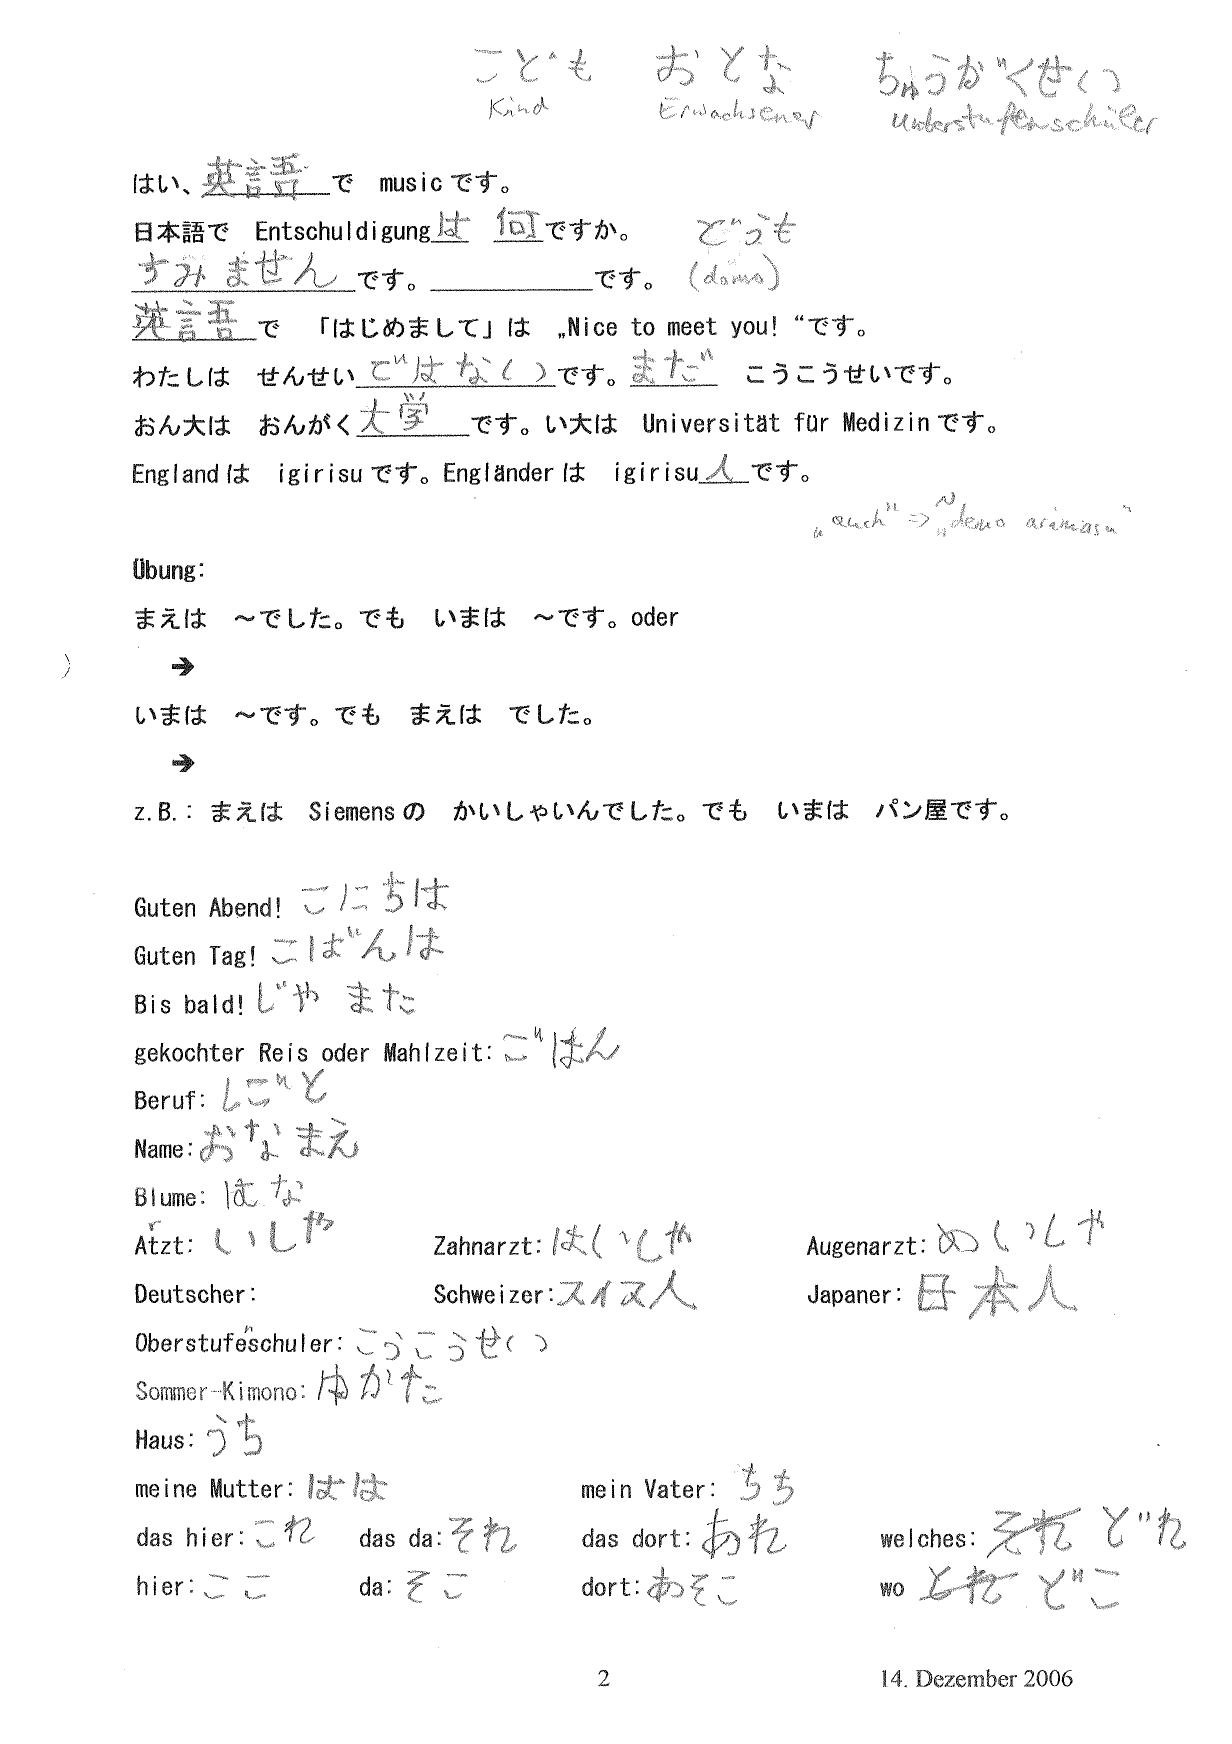 こども おとな ちゅうがくせい
Kind Erwachsener Unterstufenschüler
はい、英語で music です。
日本語で Entschuldigungは 何ですか。 どうも
すみませんです。____です。 (domo)
英語で 「はじめまして」は „Nice to meet you! “です。
わたしは せんせいではないです。まだ こうこうせいです。
おん大は おんがく大学です。い大は Universität für Medizinです。
Englandは igirisuです。Engländerは igirisu人です。
„auch" => „demo arimasu"
Übung:
まえは ～でした。でも いまは ～です。oder
→
いまは ～です。でも まえは でした。
→
z.B.: まえは Siemensの かいしゃいんでした。でも いまは パン屋です。
Guten Abend! こにちは
Guten Tag! こばんは
Bis bald! じゃ また
gekochter Reis oder Mahlzeit: ごはん
Beruf: しごと
Name: おなまえ
Blume: はな
Arzt: いしゃ Zahnarzt: はいしゃ Augenarzt: めいしゃ
Deutscher: Schweizer: スイス人 Japaner: 日本人
Oberstufenschuler: こうこうせい
Sommer-Kimono: ゆかた
Haus: うち
meine Mutter: はは mein Vater: ちち
das hier: これ das da: それ das dort: あれ welches: それ どれ
hier: ここ da: そこ dort: あそこ wo とれ どこ
2 14. Dezember 2006